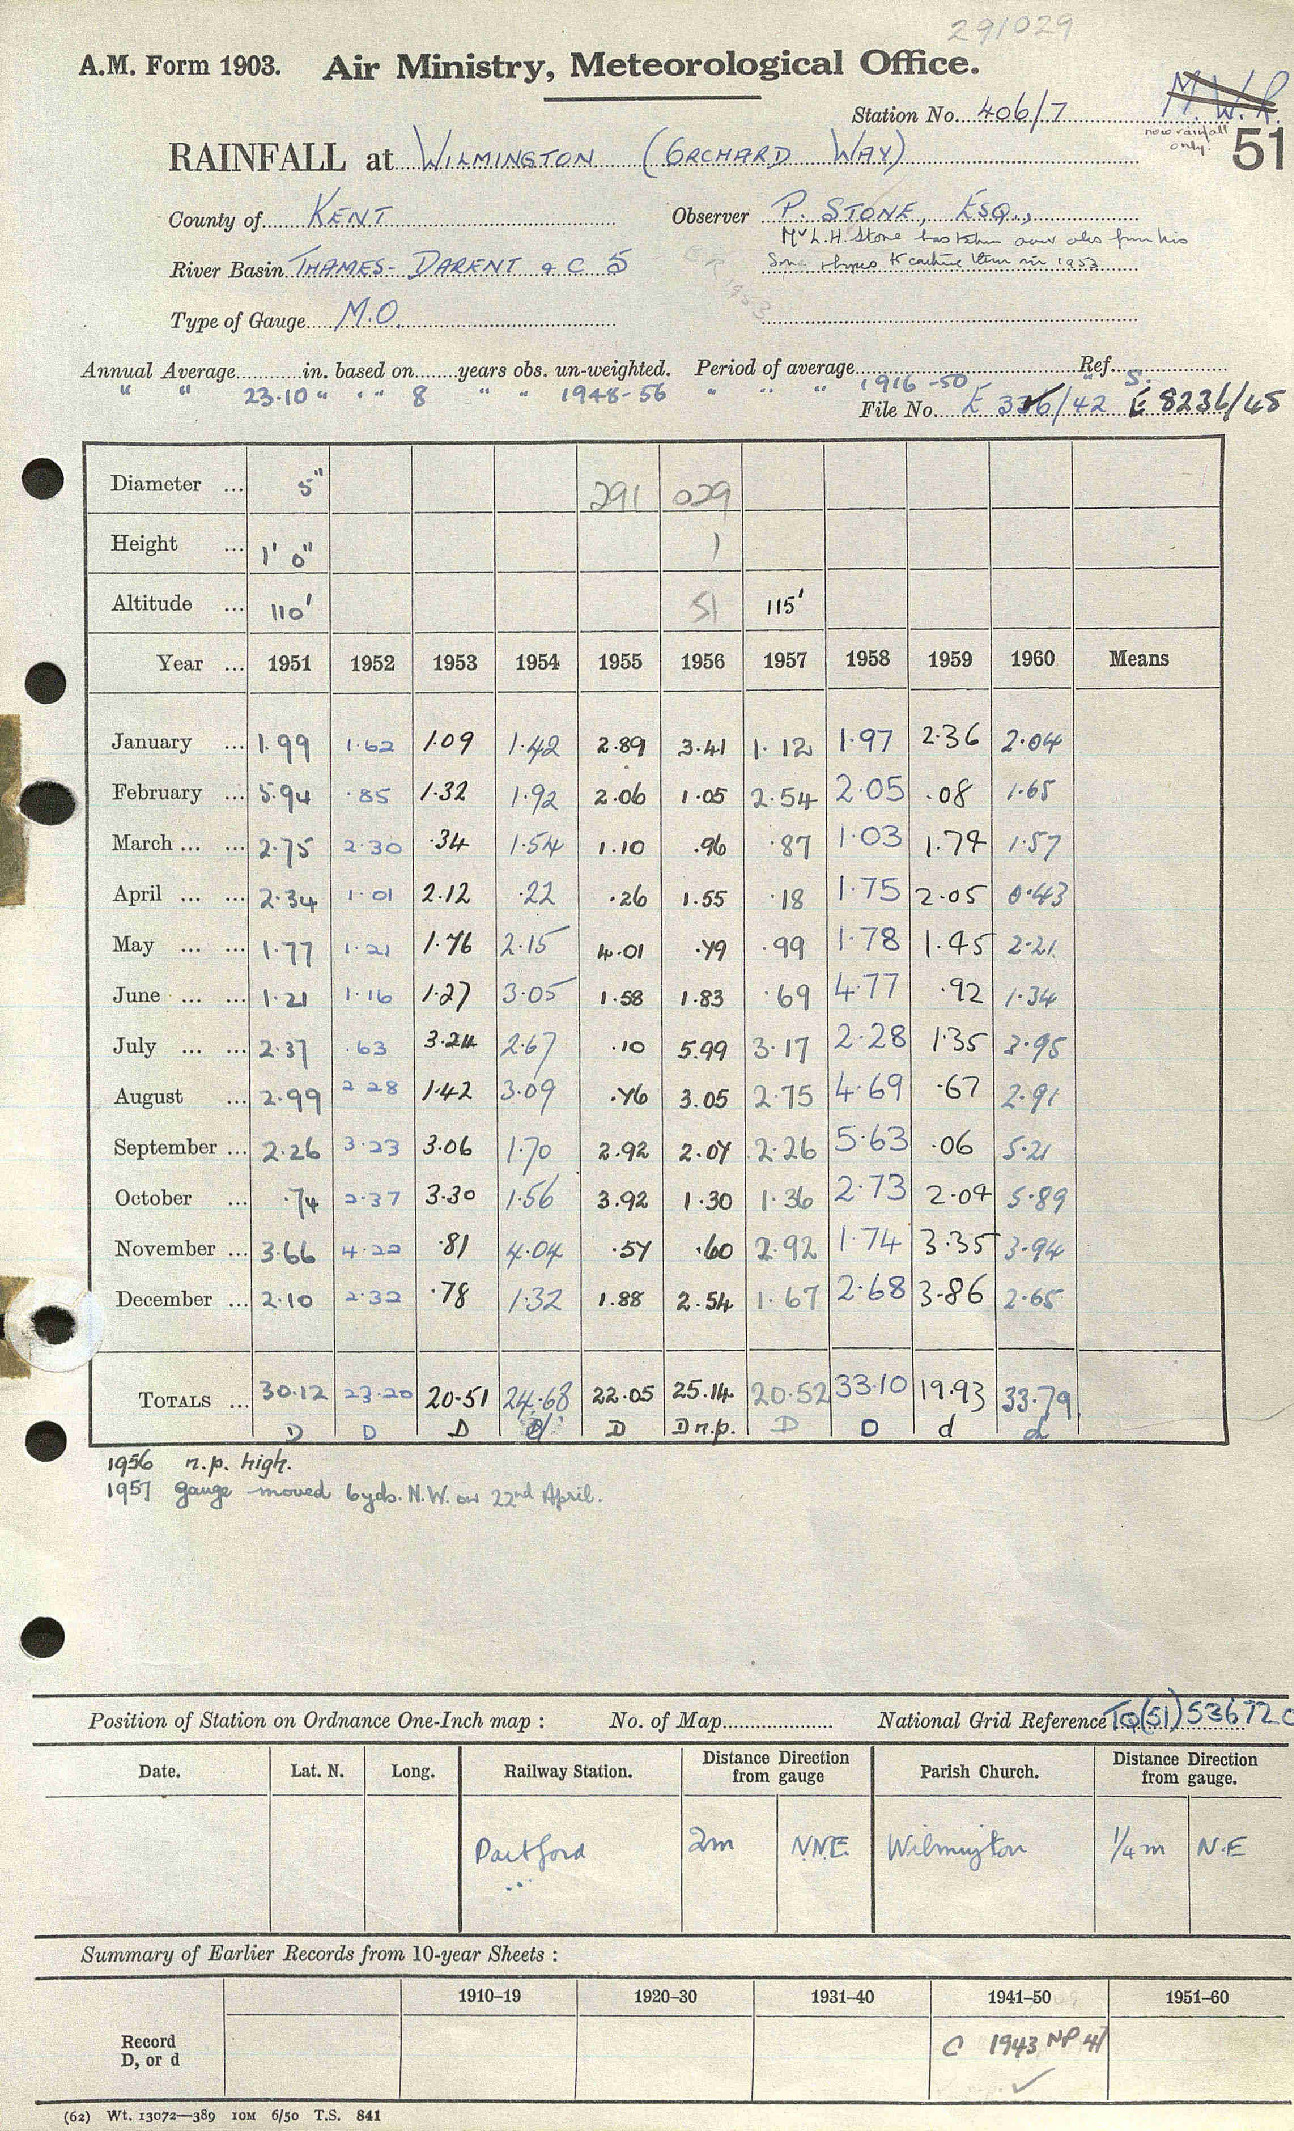 291029
A.M. Form 1903. Air Ministry, Meteorological Office.
Station No. 406/7 M.W.R.
now rainfall only
51
RAINFALL at WILMINGTON (ORCHARD WAY)
County of KENT Observer P. STONE, ESQ.,
Mr L.H. Stone has taken over obs from his
River Basin THAMES - DARENT & C 5 Son & hopes to continue them in 1953
Type of Gauge M.O.
Annual Average in. based on years obs. un-weighted. Period of average Ref.
" " 23.10 " " " 8 " " 1948-56 " " " 1916-50 " S.
File No. E 336/42 E 8236/48
Diameter ... 5" 291 029
Height ... 1' 0" 1
Altitude ... 110' 51 115'
Year ... 1951 1952 1953 1954 1955 1956 1957 1958 1959 1960 Means
January ... 1.99 1.62 1.09 1.42 2.89 3.41 1.12 1.97 2.36 2.04
February ... 5.94 .85 1.32 1.92 2.06 1.05 2.54 2.05 .08 1.65
March ... ... 2.75 2.30 .34 1.54 1.10 .96 .87 1.03 1.74 1.57
April ... ... 2.34 1.01 2.12 .22 .26 1.55 .18 1.75 2.05 0.43
May ... ... 1.77 1.21 1.76 2.15 4.01 .79 .99 1.78 1.45 2.21
June ... ... 1.21 1.16 1.27 3.05 1.58 1.83 .69 4.77 .92 1.34
July ... ... 2.37 .63 3.24 2.67 .10 5.99 3.17 2.28 1.35 3.95
August ... 2.99 2.28 1.42 3.09 .76 3.05 2.75 4.69 .67 2.91
September ... 2.26 3.23 3.06 1.70 2.92 2.07 2.26 5.63 .06 5.21
October ... .74 2.37 3.30 1.56 3.92 1.30 1.36 2.73 2.04 5.89
November ... 3.66 4.22 .81 4.04 .57 .60 2.92 1.74 3.35 3.94
December ... 2.10 2.32 .78 1.32 1.88 2.54 1.67 2.68 3.86 2.65
TOTALS ... 30.12 23.20 20.51 24.68 22.05 25.14 20.52 33.10 19.93 33.79
D D D d D D n.p. D D d d
1956 n.p. high.
1957 gauge moved 6yds. N.W. on 22nd April.
Position of Station on Ordnance One-Inch map : No. of Map National Grid Reference TQ(51)536720
Date. Lat. N. Long. Railway Station. Distance Direction from gauge Parish Church. Distance Direction from gauge.
Dartford 2m NNE. Wilmington 1/4 m N.E
Summary of Earlier Records from 10-year Sheets :
1910–19 1920–30 1931–40 1941–50 1951–60
Record D, or d C 1943 NP 41
(62) Wt. 13072—389 10M 6/50 T.S. 841